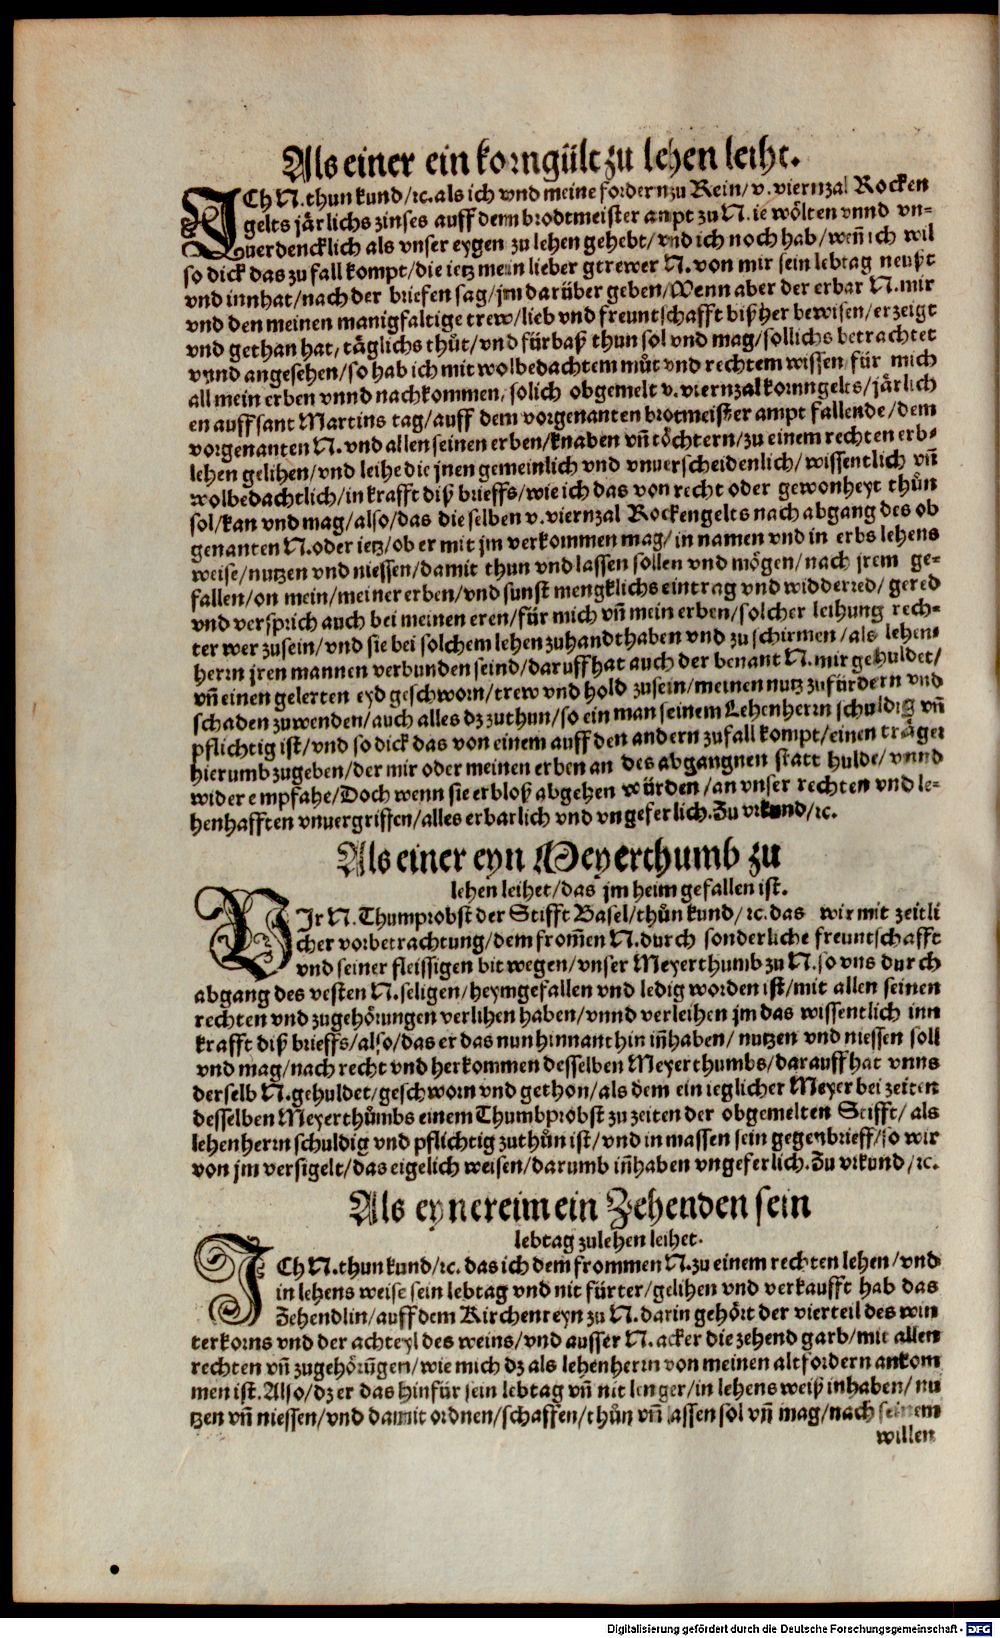 Als einer ein korngült zu lehen leiht.
ICh N. thun kund/ ꝛc. als ich vnd meine fordern zu Rein/ v. viernzal Rocken
gelts järlichs zinses auff dem brodtmeister ampt zu N. ie wölten vnnd vn-
uerdencklich als vnser eygen zu lehen gehebt/ vnd ich noch hab/ weñ ich wil
so dick das zu fall kompt/ die ietz mein lieber getrewer N. von mir sein lebtag neußt
vnd innhat/ nach der briefen sag/ jm darüber geben/ Wenn aber der erbar N. mir
vnd den meinen manigfaltige trew/ lieb vnd freuntschafft biß her bewisen/ erzeigt
vnd gethan hat, täglichs thůt/ vnd fürbaß thun sol vnd mag/ sollichs betrachtet
vnnd angesehen/ so hab ich mit wolbedachtem můt vnd rechtem wissen/ für mich
all mein erben vnnd nachkommen, solich obgemelt v. viernzal korngelts/ järlich
en auff sant Martins tag/ auff dem vorgenanten brotmeister ampt fallende/ dem
vorgenanten N. vnd allen seinen erben/ knaben vñ töchtern/ zu einem rechten erb-
lehen gelihen/ vnd leihe die jnen gemeinlich vnd vnuerscheidenlich/ wissentlich vñ
wolbedachtlich/ in krafft diß brieffs/ wie ich das von recht oder gewonheyt thůn
sol/ kan vnd mag/ also/ das die selben v. viernzal Rockengelts nach abgang des ob
genanten N. oder ietz/ ob er mit jm verkommen mag/ in namen vnd in erbs lehens
weise/ nutzen vnd niessen/ damit thun vnd lassen sollen vnd mögen/ nach jrem ge-
fallen/ on mein/ meiner erben/ vnd sunst mengklichs eintrag vnd widderred/ gered
vnd versprich auch bei meinen eren/ für mich vñ mein erben/ solcher leihung rech-
ter wer zusein/ vnd sie bei solchem lehen zuhandthaben vnd zu schirmen/ als lehen-
herrn jren mannen verbunden seind/ daruff hat auch der benant N. mir gehuldet/
vñ einen gelerten eyd geschworn/ trew vnd hold zusein/ meinen nutz zufürdern vnd
schaden zuwenden/ auch alles dz zuthun/ so ein man seinem Lehenherrn schuldig vñ
pflichtig ist/ vnd so dick das von einem auff den andern zufall kompt/ einen träger
hierumb zugeben/ der mir oder meinen erben an des abgangnen statt hulde/ vnnd
wider empfahe/ Doch wenn sie erbloß abgehen würden/ an vnser rechten vnd le-
henhafften vnuergriffen/ alles erbarlich vnd vngeferlich. Zu vrkund/ ꝛc.
Als einer eyn Meyerthumb zu
lehen leihet/ das jm heim gefallen ist.
WIr N. Thumprobst der Stifft Basel/ thůn kund/ ꝛc. das wir mit zeitli
cher vorbetrachtung/ dem from̃en N. durch sonderliche freuntschafft
vnd seiner fleissigen bit wegen/ vnser Meyerthumb zu N. so vns durch
abgang des vesten N. seligen/ heymgefallen vnd ledig worden ist/ mit allen seinen
rechten vnd zugehörungen verlihen haben/ vnnd verleihen jm das wissentlich inn
krafft diß brieffs/ also/ das er das nun hinnanthin iñhaben/ nutzen vnd niessen soll
vnd mag/ nach recht vnd herkommen desselben Meyerthumbs/ darauff hat vnns
derselb N. gehuldet/ geschworn vnd gethon/ als dem ein ieglicher Meyer bei zeiten
desselben Meyerthůmbs einem Thumbprobst zu zeiten der obgemelten Stifft/ als
lehenherrn schuldig vnd pflichtig zuthůn ist/ vnd in massen sein gegenbrieff/ so wir
von jm versigelt/ das eigelich weisen/ darumb iñhaben vngeferlich. Zu vrkund/ ꝛc.
Als eyner eim ein Zehenden sein
lebtag zulehen leihet.
ICh N. thun kund/ ꝛc. das ich dem frommen N. zu einem rechten lehen/ vnd
in lehens weise sein lebtag vnd nit fürter/ gelihen vnd verkaufft hab das
Zehendlin/ auff dem Kirchenreyn zu N. darin gehört der vierteil des win
terkorns vnd der achteyl des weins/ vnd ausser N. acker die zehend garb/ mit allen
rechten vñ zugehörũgen/ wie mich dz als lehenherrn von meinen altfordern ankom
men ist. Also/ dz er das hinfür sein lebtag vñ nit lenger/ in lehens weiß inhaben/ nu
tzen vñ niessen/ vnd damit ordnen/ schaffen/ thůn vñ lassen sol vñ mag/ nach seinem
willen
Digitalisierung gefördert durch die Deutsche Forschungsgemeinschaft - DFG